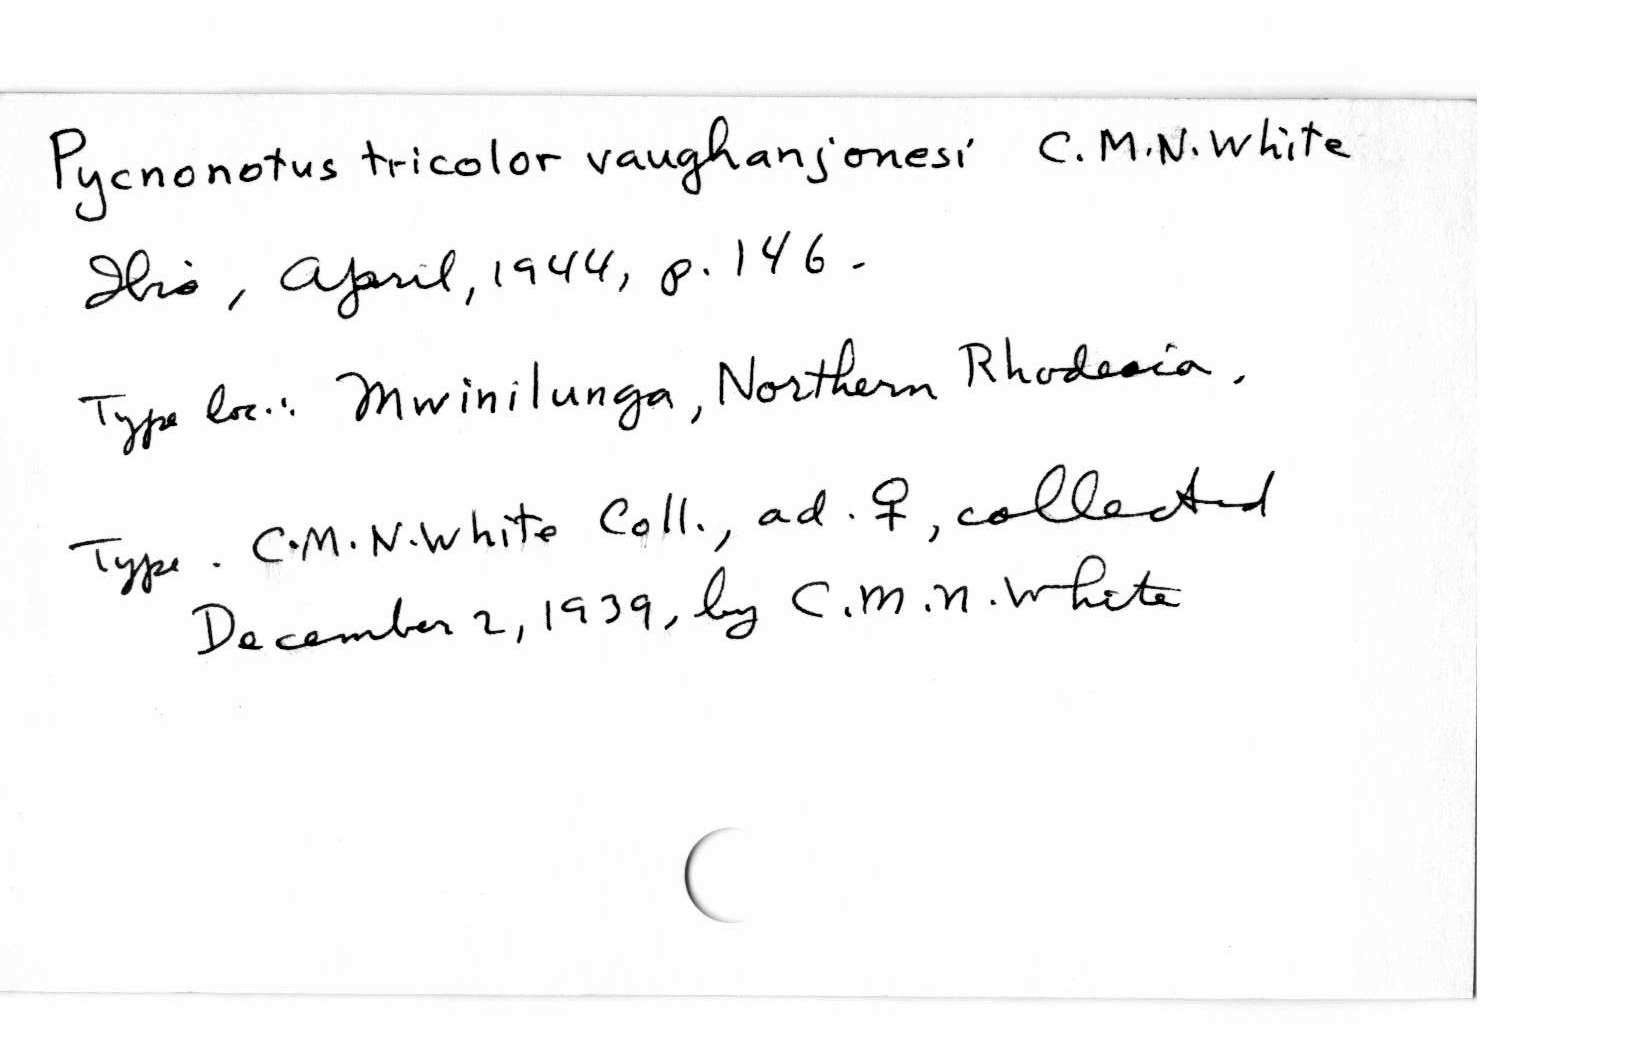 Pycnonotus tricolor vaughanjonesi C.M.N. White
Ibis, April, 1944, p. 146.
Type loc.: Mwinilunga, Northern Rhodesia.
Type. C.M.N. White Coll., ad. ♀, collected
December 2, 1939, by C.M.N. White